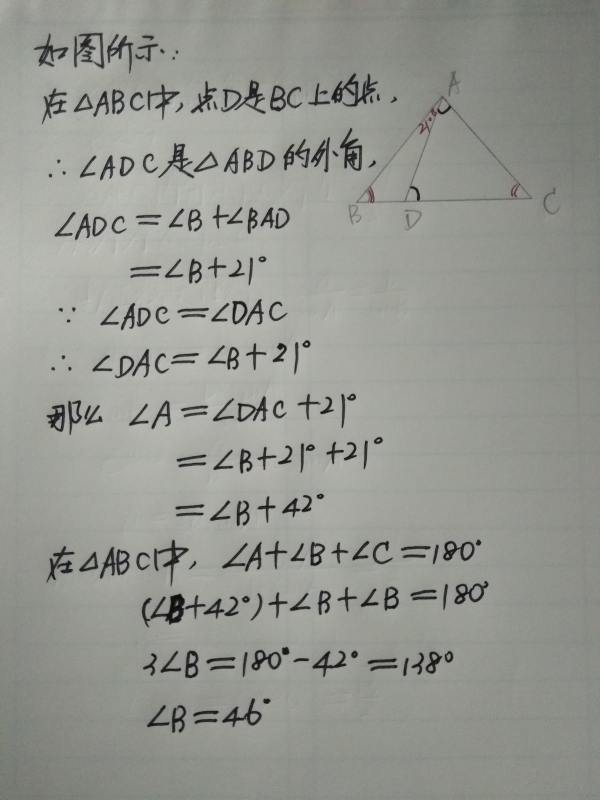 如图所示:
在△ABC中,点D是BC上的点,
∴∠ADC是△ABD的外角,
∠ADC=∠B+∠BAD
=∠B+21°
∵ ∠ADC=∠DAC
∴ ∠DAC=∠B+21°
那么 ∠A=∠DAC+21°
=∠B+21°+21°
=∠B+42°
在△ABC中, ∠A+∠B+∠C=180°
(∠B+42°)+∠B+∠B=180°
3∠B=180°-42°=138°
∠B=46°
A
B
D
C